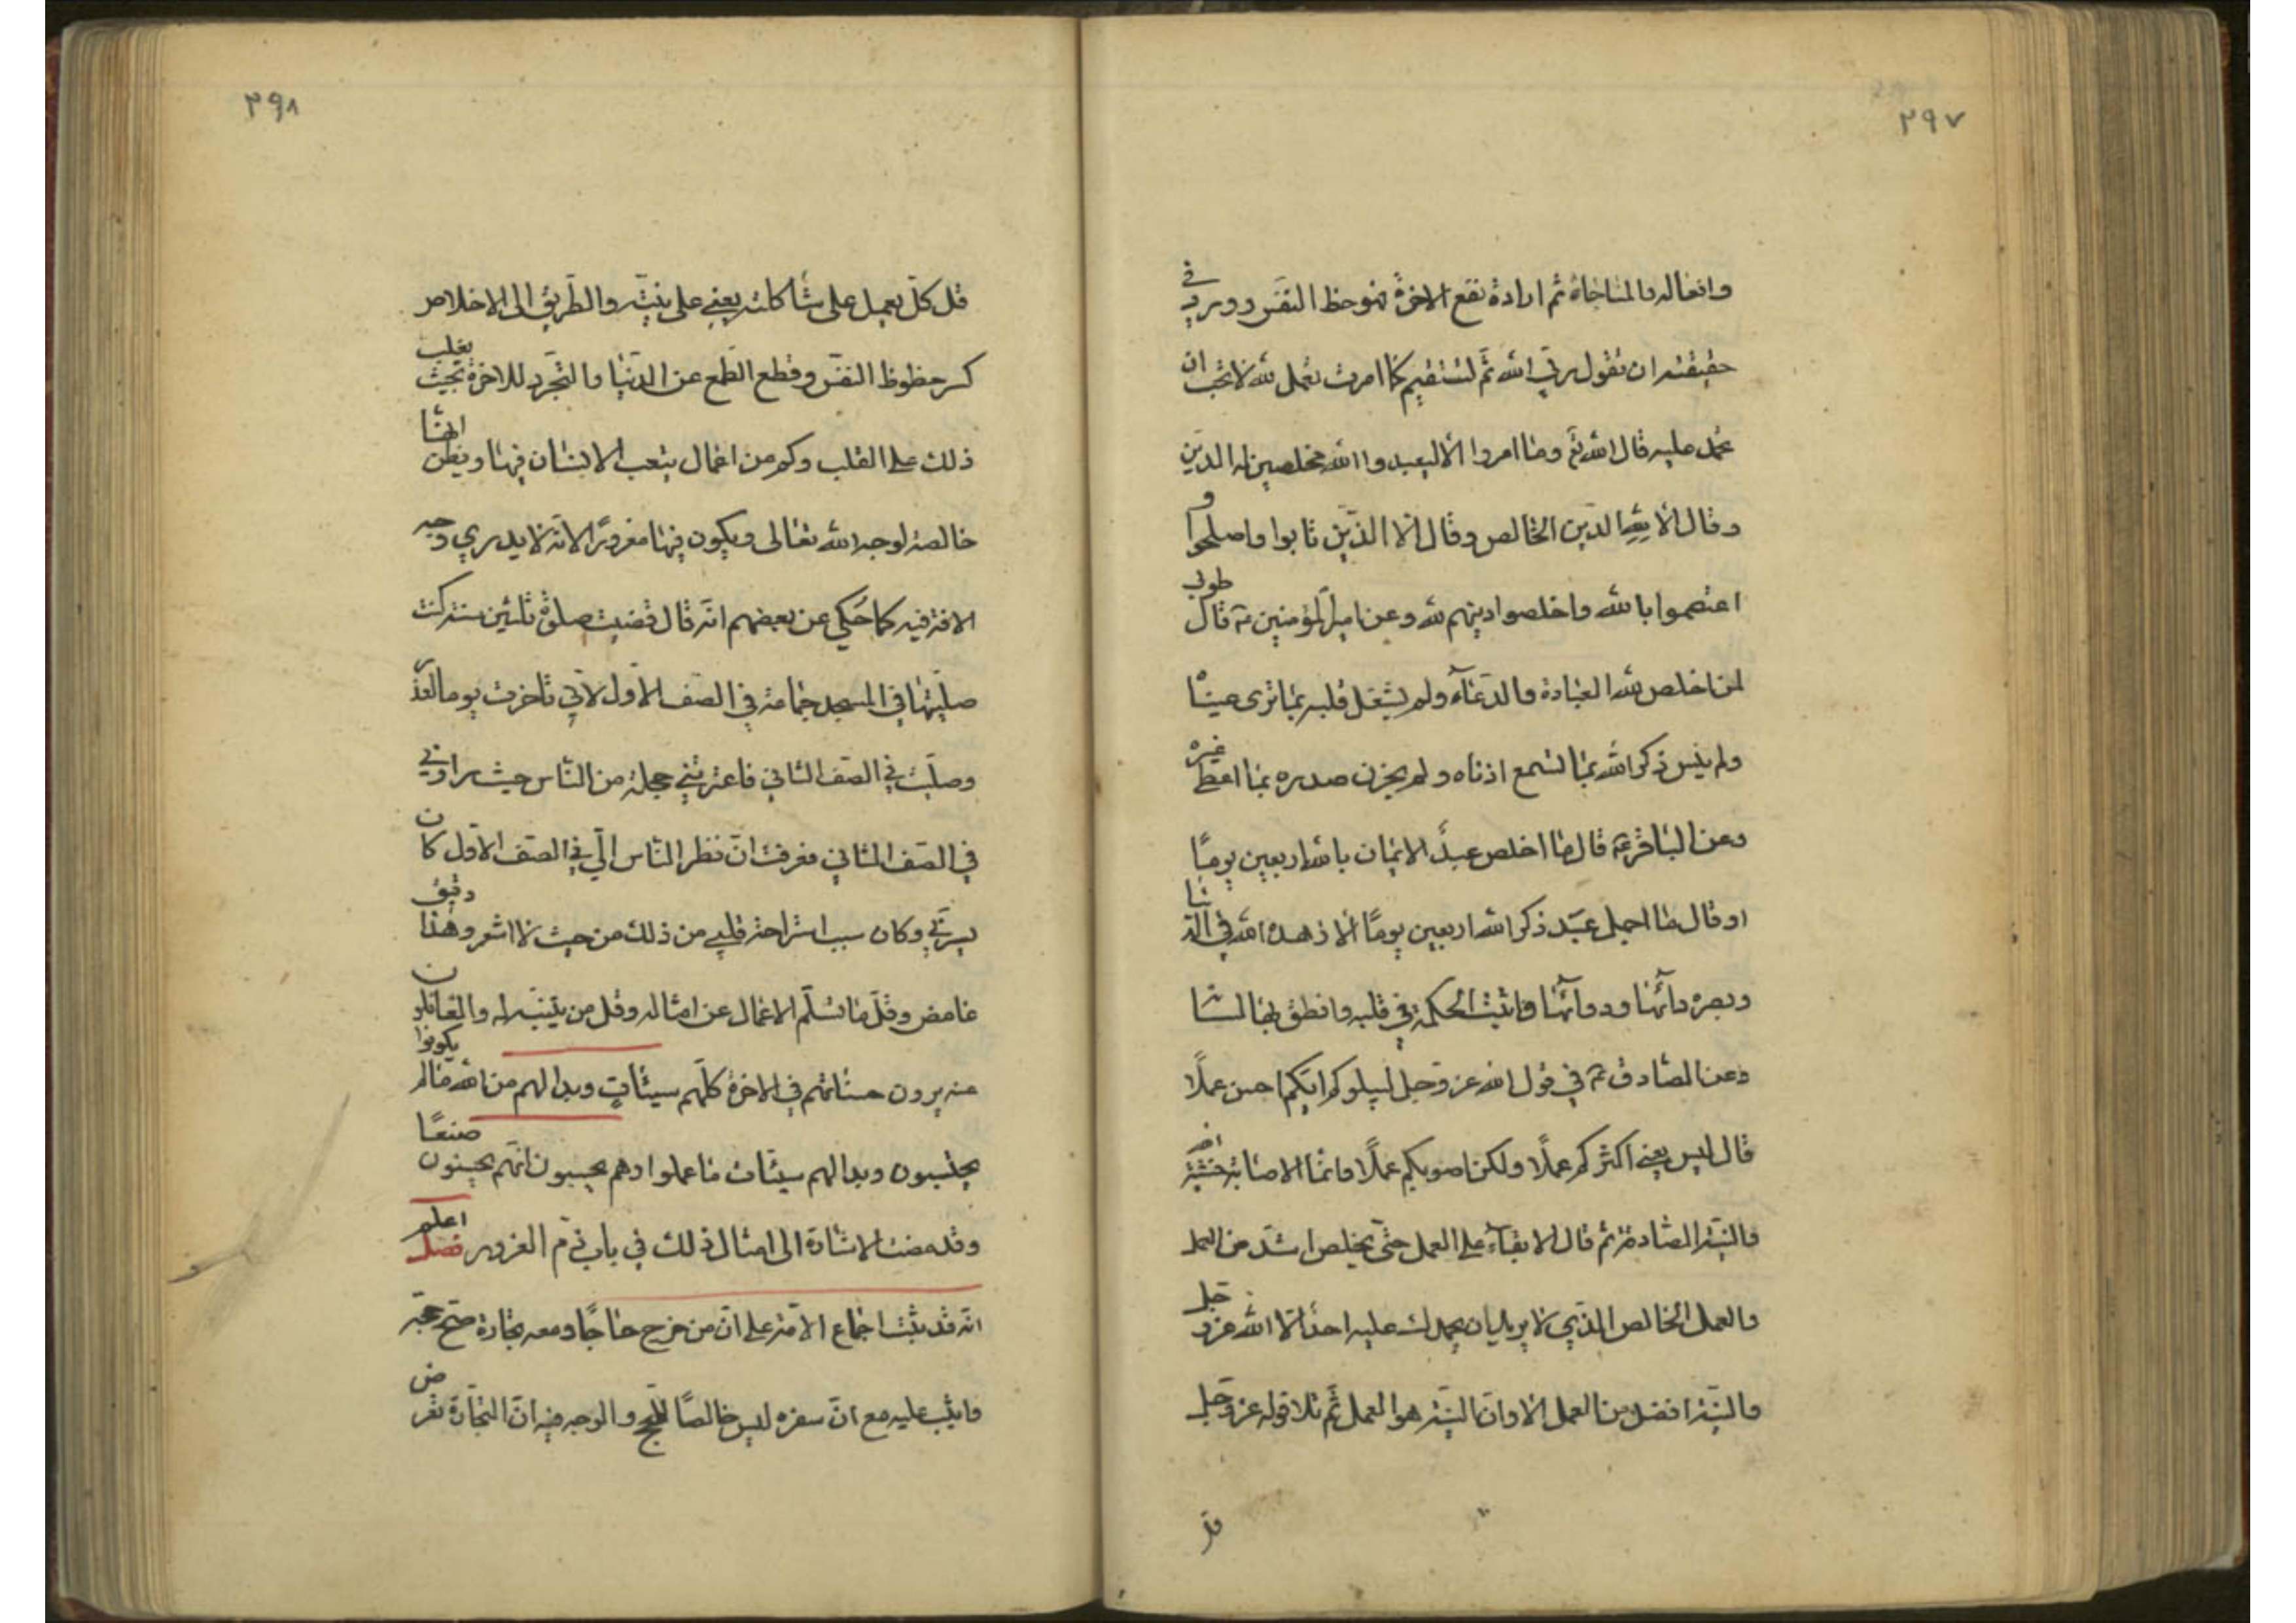 ۳۹۷
وافعاله والمناجاة ثم ارادة نفع الاخرة نحو حظ النفس وورد في
حقيقته ان تقول ربي الله ثم تستقيم كما امرت تعمل لله لا تحب ان
تحمد عليه قال الله تع وما امروا الا ليعبدوا الله مخلصين له الدين
وقال الا لله الدين الخالص وقال الا الذين تابوا واصلحوا و
اعتصموا بالله واخلصوا دينهم لله وعن امير المؤمنين ع قال طوبى
لمن اخلص لله العبادة والدعاء ولم يشغل قلبه بما ترى عيناه
ولم ينس ذكر الله بما تسمع اذناه ولم يحزن صدره بما اعطى غيره
وعن الباقر ع قال ما اخلص عبد الايمان بالله اربعين يومًا
او قال ما اجمل عبد ذكر الله اربعين يومًا الا زهده الله في الدنيا
وبصره دائها ودوائها واثبت الحكمة في قلبه وانطق بها لسانه
وعن الصادق ع في قول الله عز وجل ليبلوكم ايكم احسن عملًا
قال ليس يعني اكثركم عملًا ولكن اصوبكم عملًا وانما الاصابة خشية الله
والنية الصادقة ثم قال الابقاء على العمل حتى يخلص اشد من العمل
والعمل الخالص الذي لا تريد ان يحمدك عليه احد الا الله عز وجل
والنية افضل من العمل الا وان النية هو العمل ثم تلا قوله عز وجل
قل
۳۹۸
قل كل يعمل على شاكلته يعني على نيته والطريق الى الاخلاص
كسر حظوظ النفس وقطع الطمع عن الدنيا والتجرد للاخرة بحيث يغلب
ذلك على القلب وكم من اعمال يتعب الانسان فيها ويظن انها
خالصة لوجه الله تعالى ويكون فيها مغرورًا لانه لا يدري وجه
الافة فيه كما حكي عن بعضهم انه قال قضيت صلوة ثلثين سنة كنت
صليتها في المسجد جماعة في الصف الاول لاني تاخرت يوما لعذر
وصليت في الصف الثاني فاعترتني خجلة من الناس حيث راوني
في الصف الثاني فعرفت ان نظر الناس الي في الصف الاول كان
يسرني وكان سبب استراحة قلبي من ذلك من حيث لا اشعر وهذا دقيق
غامض وقل ما تسلم الاعمال عن امثاله وقل من يتنبه له والغافلون
عنه يرون حسناتهم في الاخرة كلهم سيئات وبدا لهم من الله ما لم يكونوا
يحتسبون وبدا لهم سيئات ما عملوا وهم يحسبون انهم يحسنون صنعًا
وقد مضت الاشارة الى امثال ذلك في باب ذم الغرور فصل اعلم
انه قد ثبت اجماع الامة على ان من خرج حاجًا ومعه تجارة صح حجه
واثيب عليه مع ان سفره ليس خالصًا للحج والوجه فيه ان التجارة تعرض